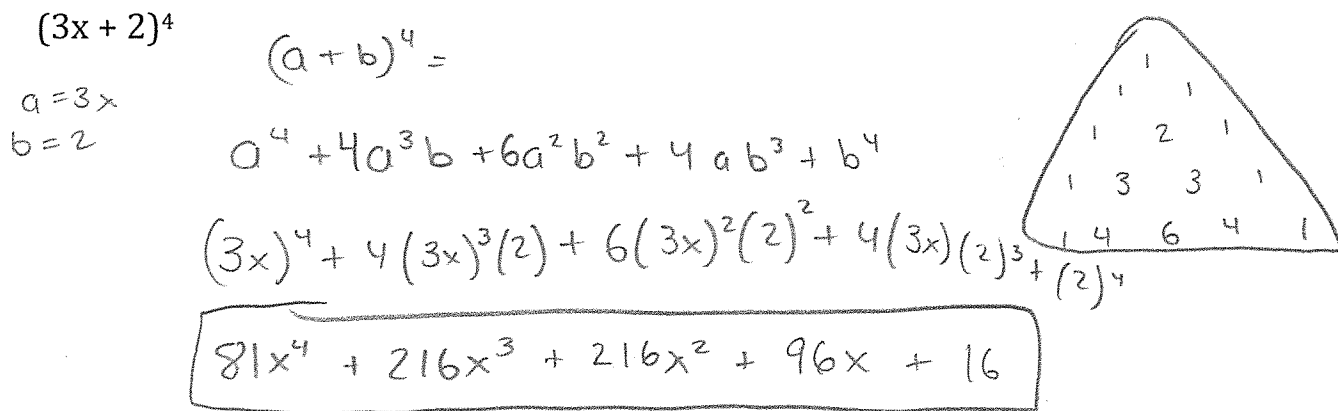 (3x + 2)⁴
a = 3x
b = 2
(a + b)⁴ =
a⁴ + 4a³b + 6a²b² + 4ab³ + b⁴
(3x)⁴ + 4(3x)³(2) + 6(3x)²(2)² + 4(3x)(2)³ + (2)⁴
81x⁴ + 216x³ + 216x² + 96x + 16
1
1 1
1 2 1
1 3 3 1
1 4 6 4 1